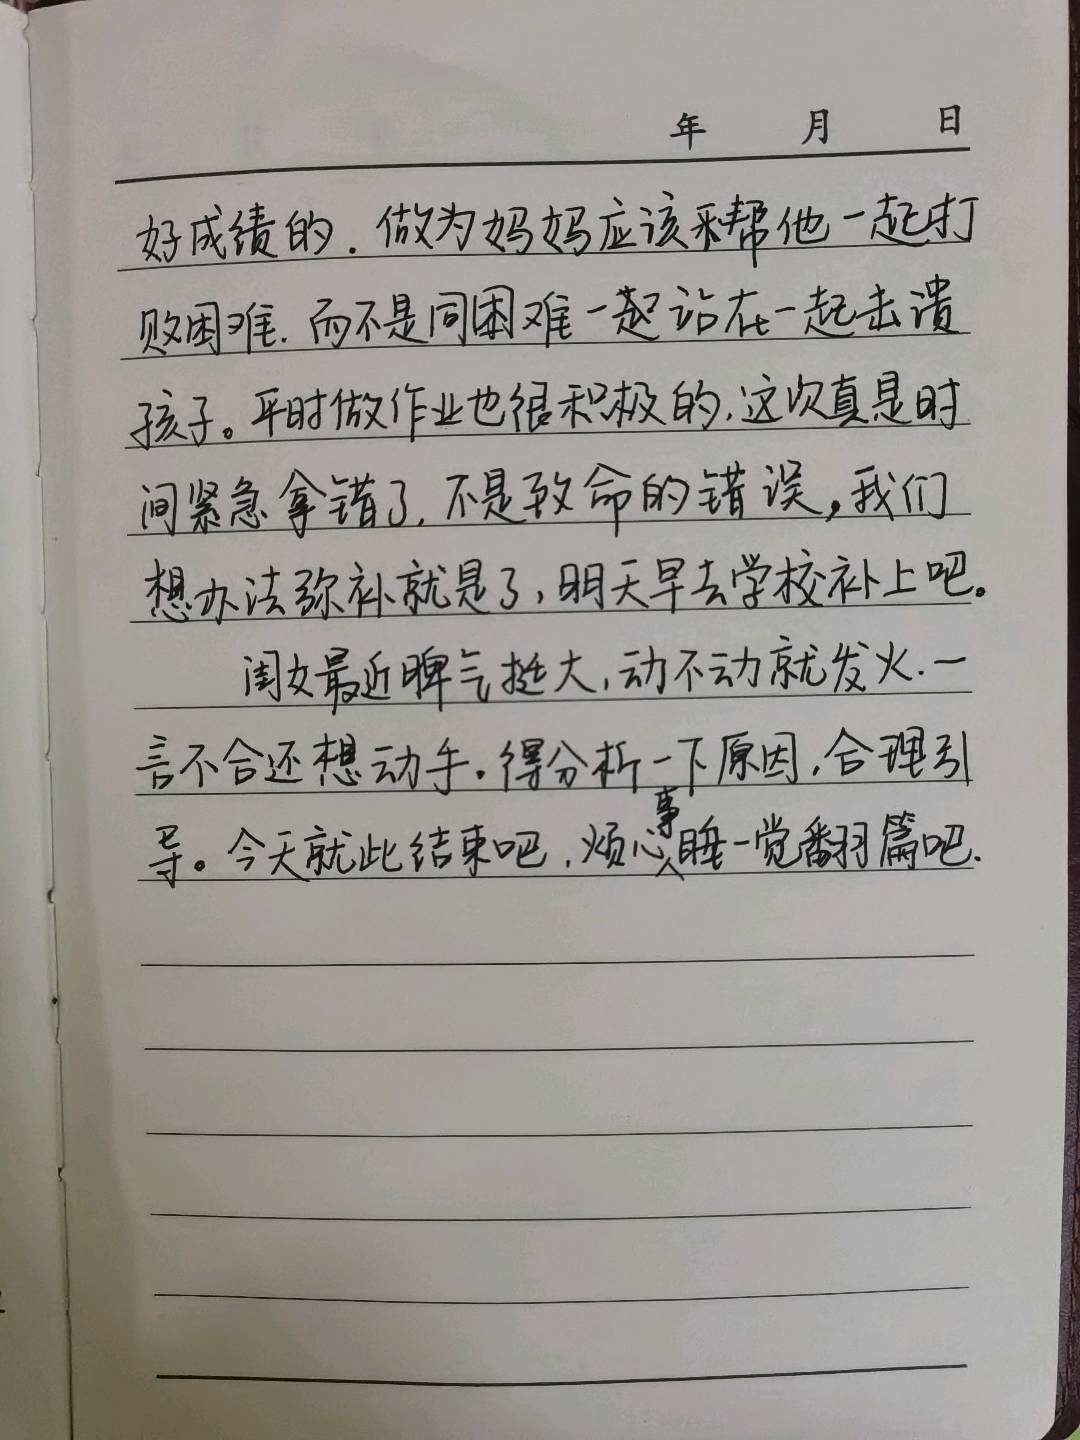 年 月 日
好成绩的.做为妈妈应该来帮他一起打
败困难.而不是同困难一起站在一起击溃
孩子。平时做作业也很积极的,这次真是时
间紧急拿错了,不是致命的错误,我们
想办法弥补就是了,明天早去学校补上吧。
闺女最近脾气挺大,动不动就发火.一
言不合还想动手.得分析一下原因,合理引
导。今天就此结束吧,烦心事睡一觉翻篇吧.